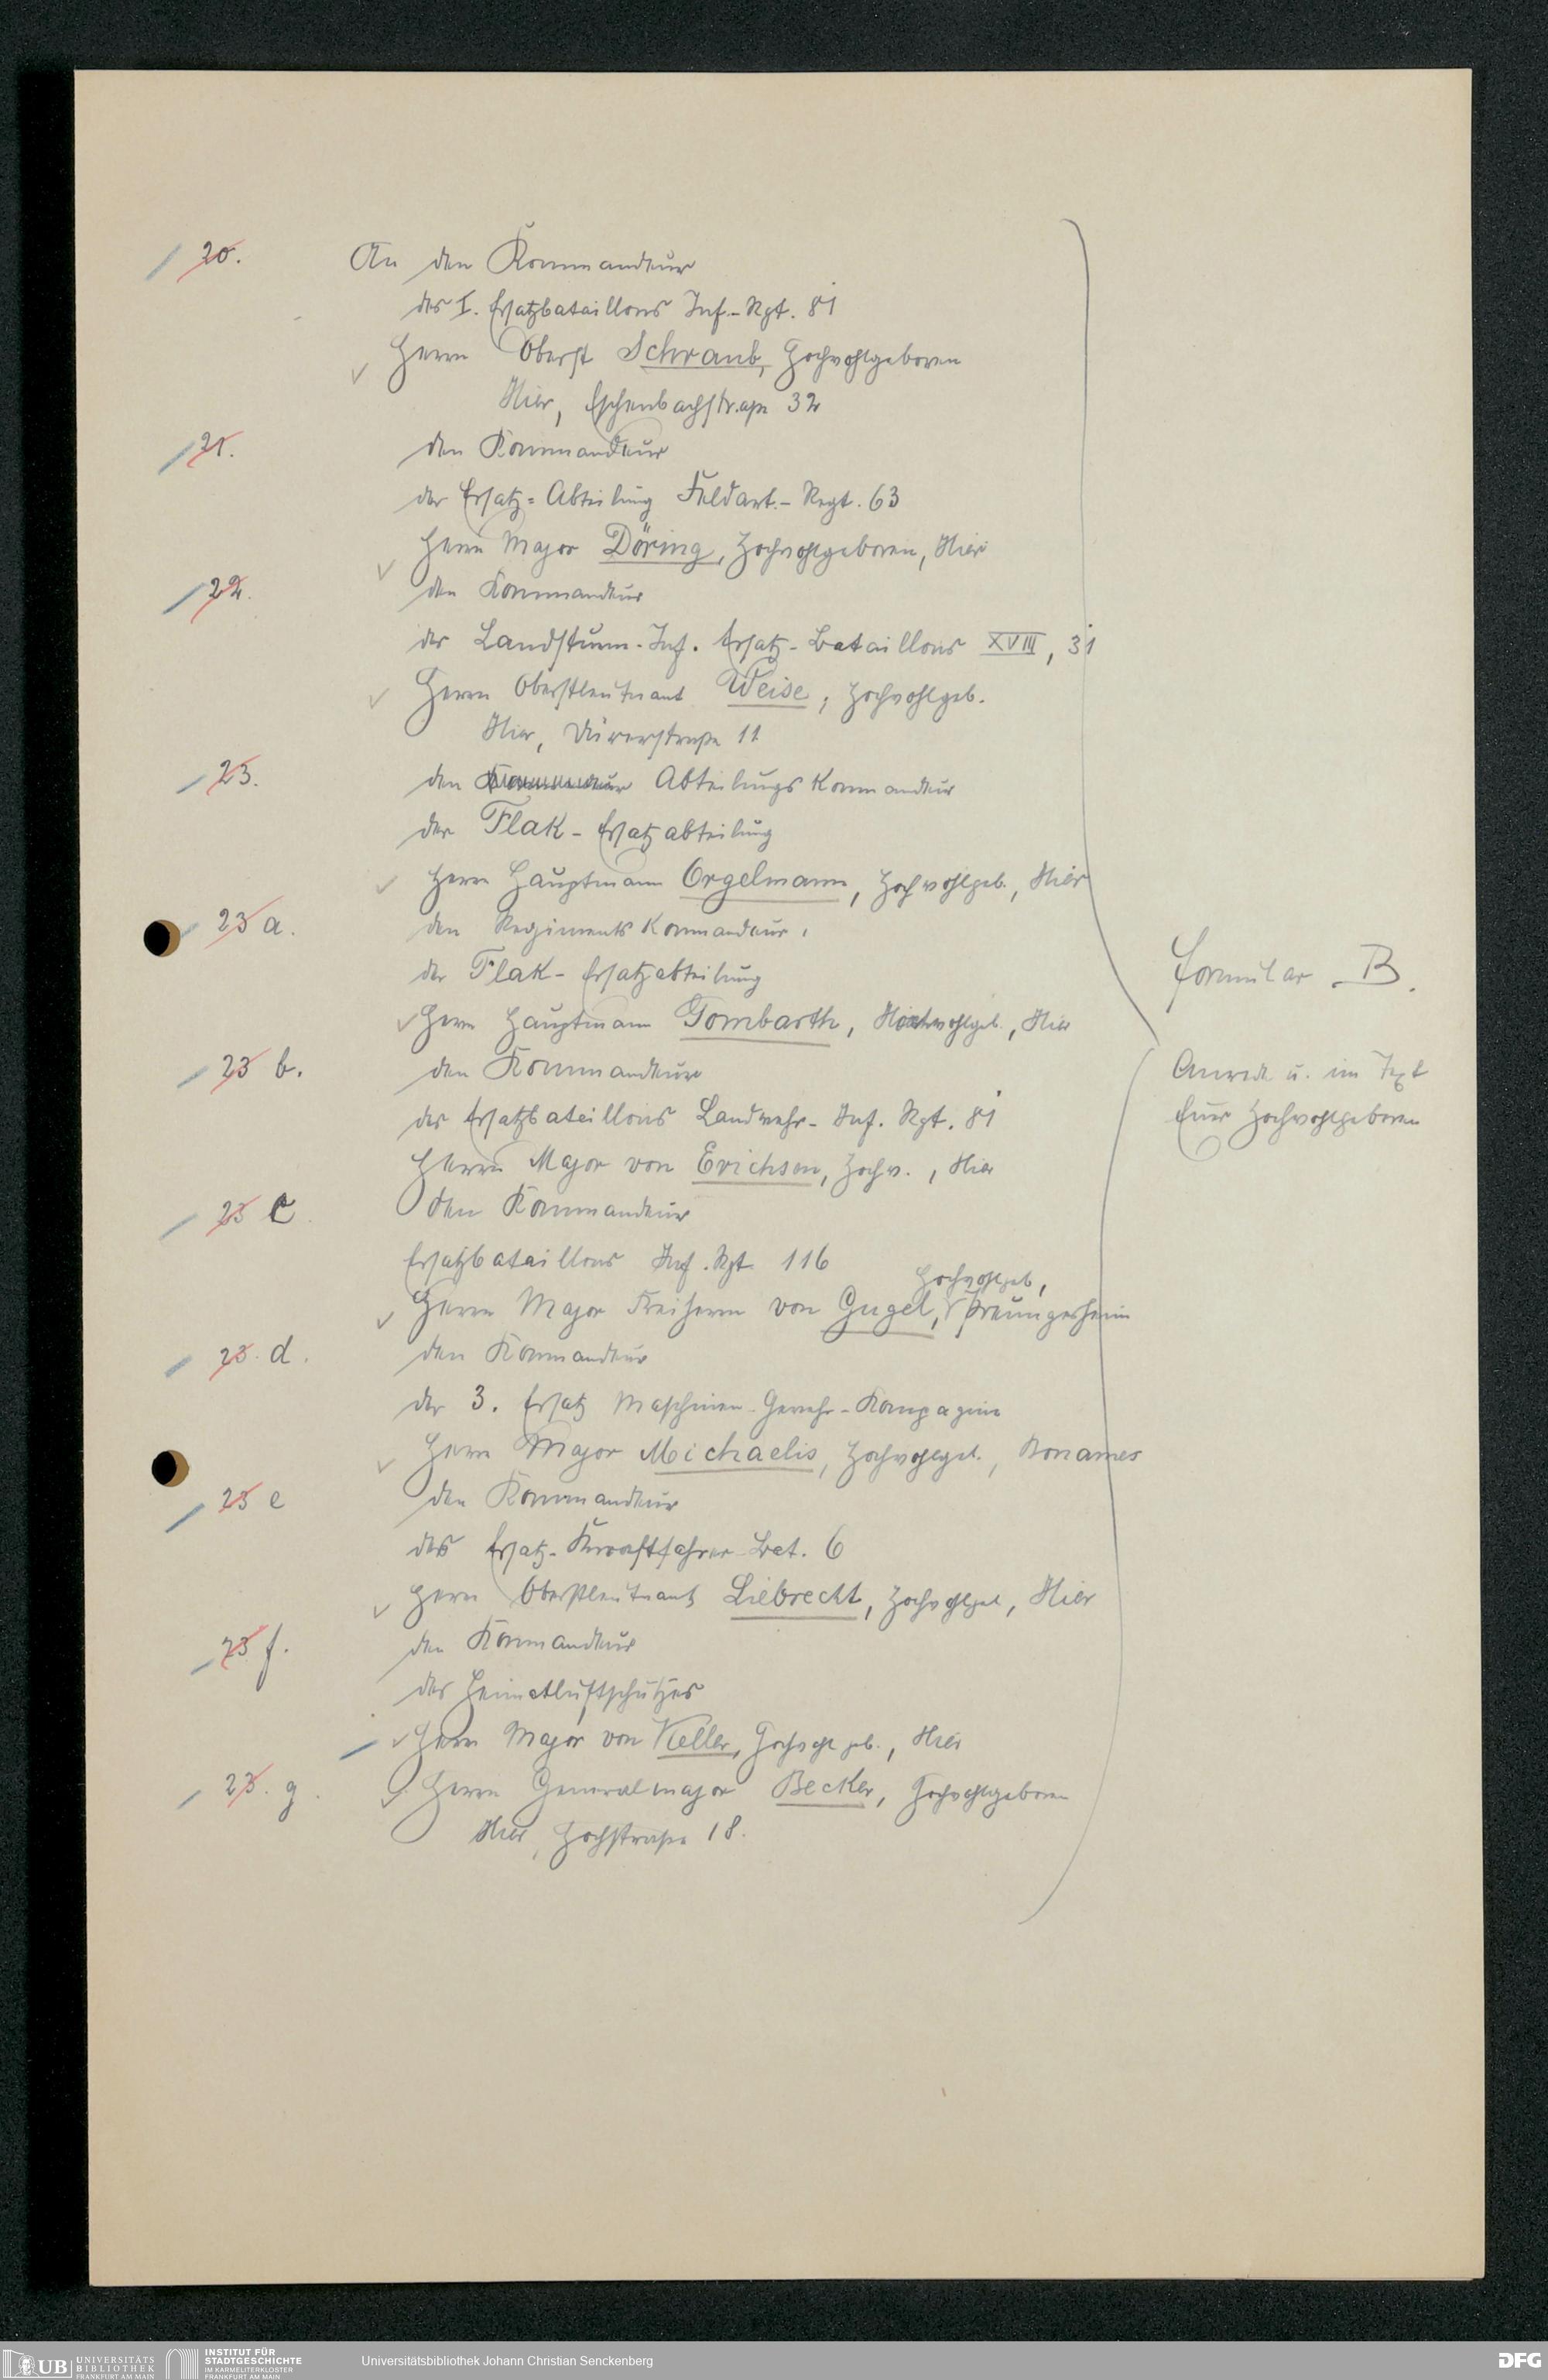 20. An den Kommandeur
des I. Ersatzbataillons Inf.-Rgt. 81
Herrn Oberst Schraub, Hochwohlgeboren
Hier, Eschenbachstraße 32
21. den Kommandeur
der Ersatz-Abteilung Feldart.-Regt. 63
Herrn Major Döring, Hochwohlgeboren, Hier
22. den Kommandeur
des Landsturm-Inf. Ersatz-Bataillons XVIII, 31
Herrn Oberstleutnant Weise, Hochwohlgeb.
Hier, Dürerstraße 11
23. den Kommandeur Abteilungskommandeur
der Flak-Ersatzabteilung
Herrn Hauptmann Orgelmann, Hochwohlgeb., Hier
23 a. den Regimentskommandeur,
der Flak-Ersatzabteilung
Herrn Hauptmann Gombarth, Hochwohlgeb., Hier
Formular B.
23 b. den Kommandeur
des Ersatzbataillons Landwehr-Inf. Rgt. 81
Herrn Major von Erichson, Hochw., Hier
Anrede u. im Text
Euer Hochwohlgeboren
23 c. den Kommandeur
Ersatzbataillons Inf. Rgt. 116
Hochwohlgeb,
Herrn Major Freiherrn von Gugel, Preungesheim
23. d. den Kommandeur
der 3. Ersatz Maschinen-Gewehr-Kompagnie
Herrn Major Michaelis, Hochwohlgeb., Bonames
23 e den Kommandeur
des Ersatz-Kraftfahrer-Bat. 6
Herrn Oberstleutnant Liebrecht, Hochwohlgeb, Hier
23 f. den Kommandeur
des Heimatluftschutzes
Herrn Major von Keller, Hochwohlgeb., Hier
23. g. Herrn Generalmajor Becker, Hochwohlgeboren
Hier, Hochstraße 18.
UB UNIVERSITÄTS
BIBLIOTHEK
FRANKFURT AM MAIN
INSTITUT FÜR
STADTGESCHICHTE
IM KARMELITERKLOSTER
FRANKFURT AM MAIN
Universitätsbibliothek Johann Christian Senckenberg
DFG